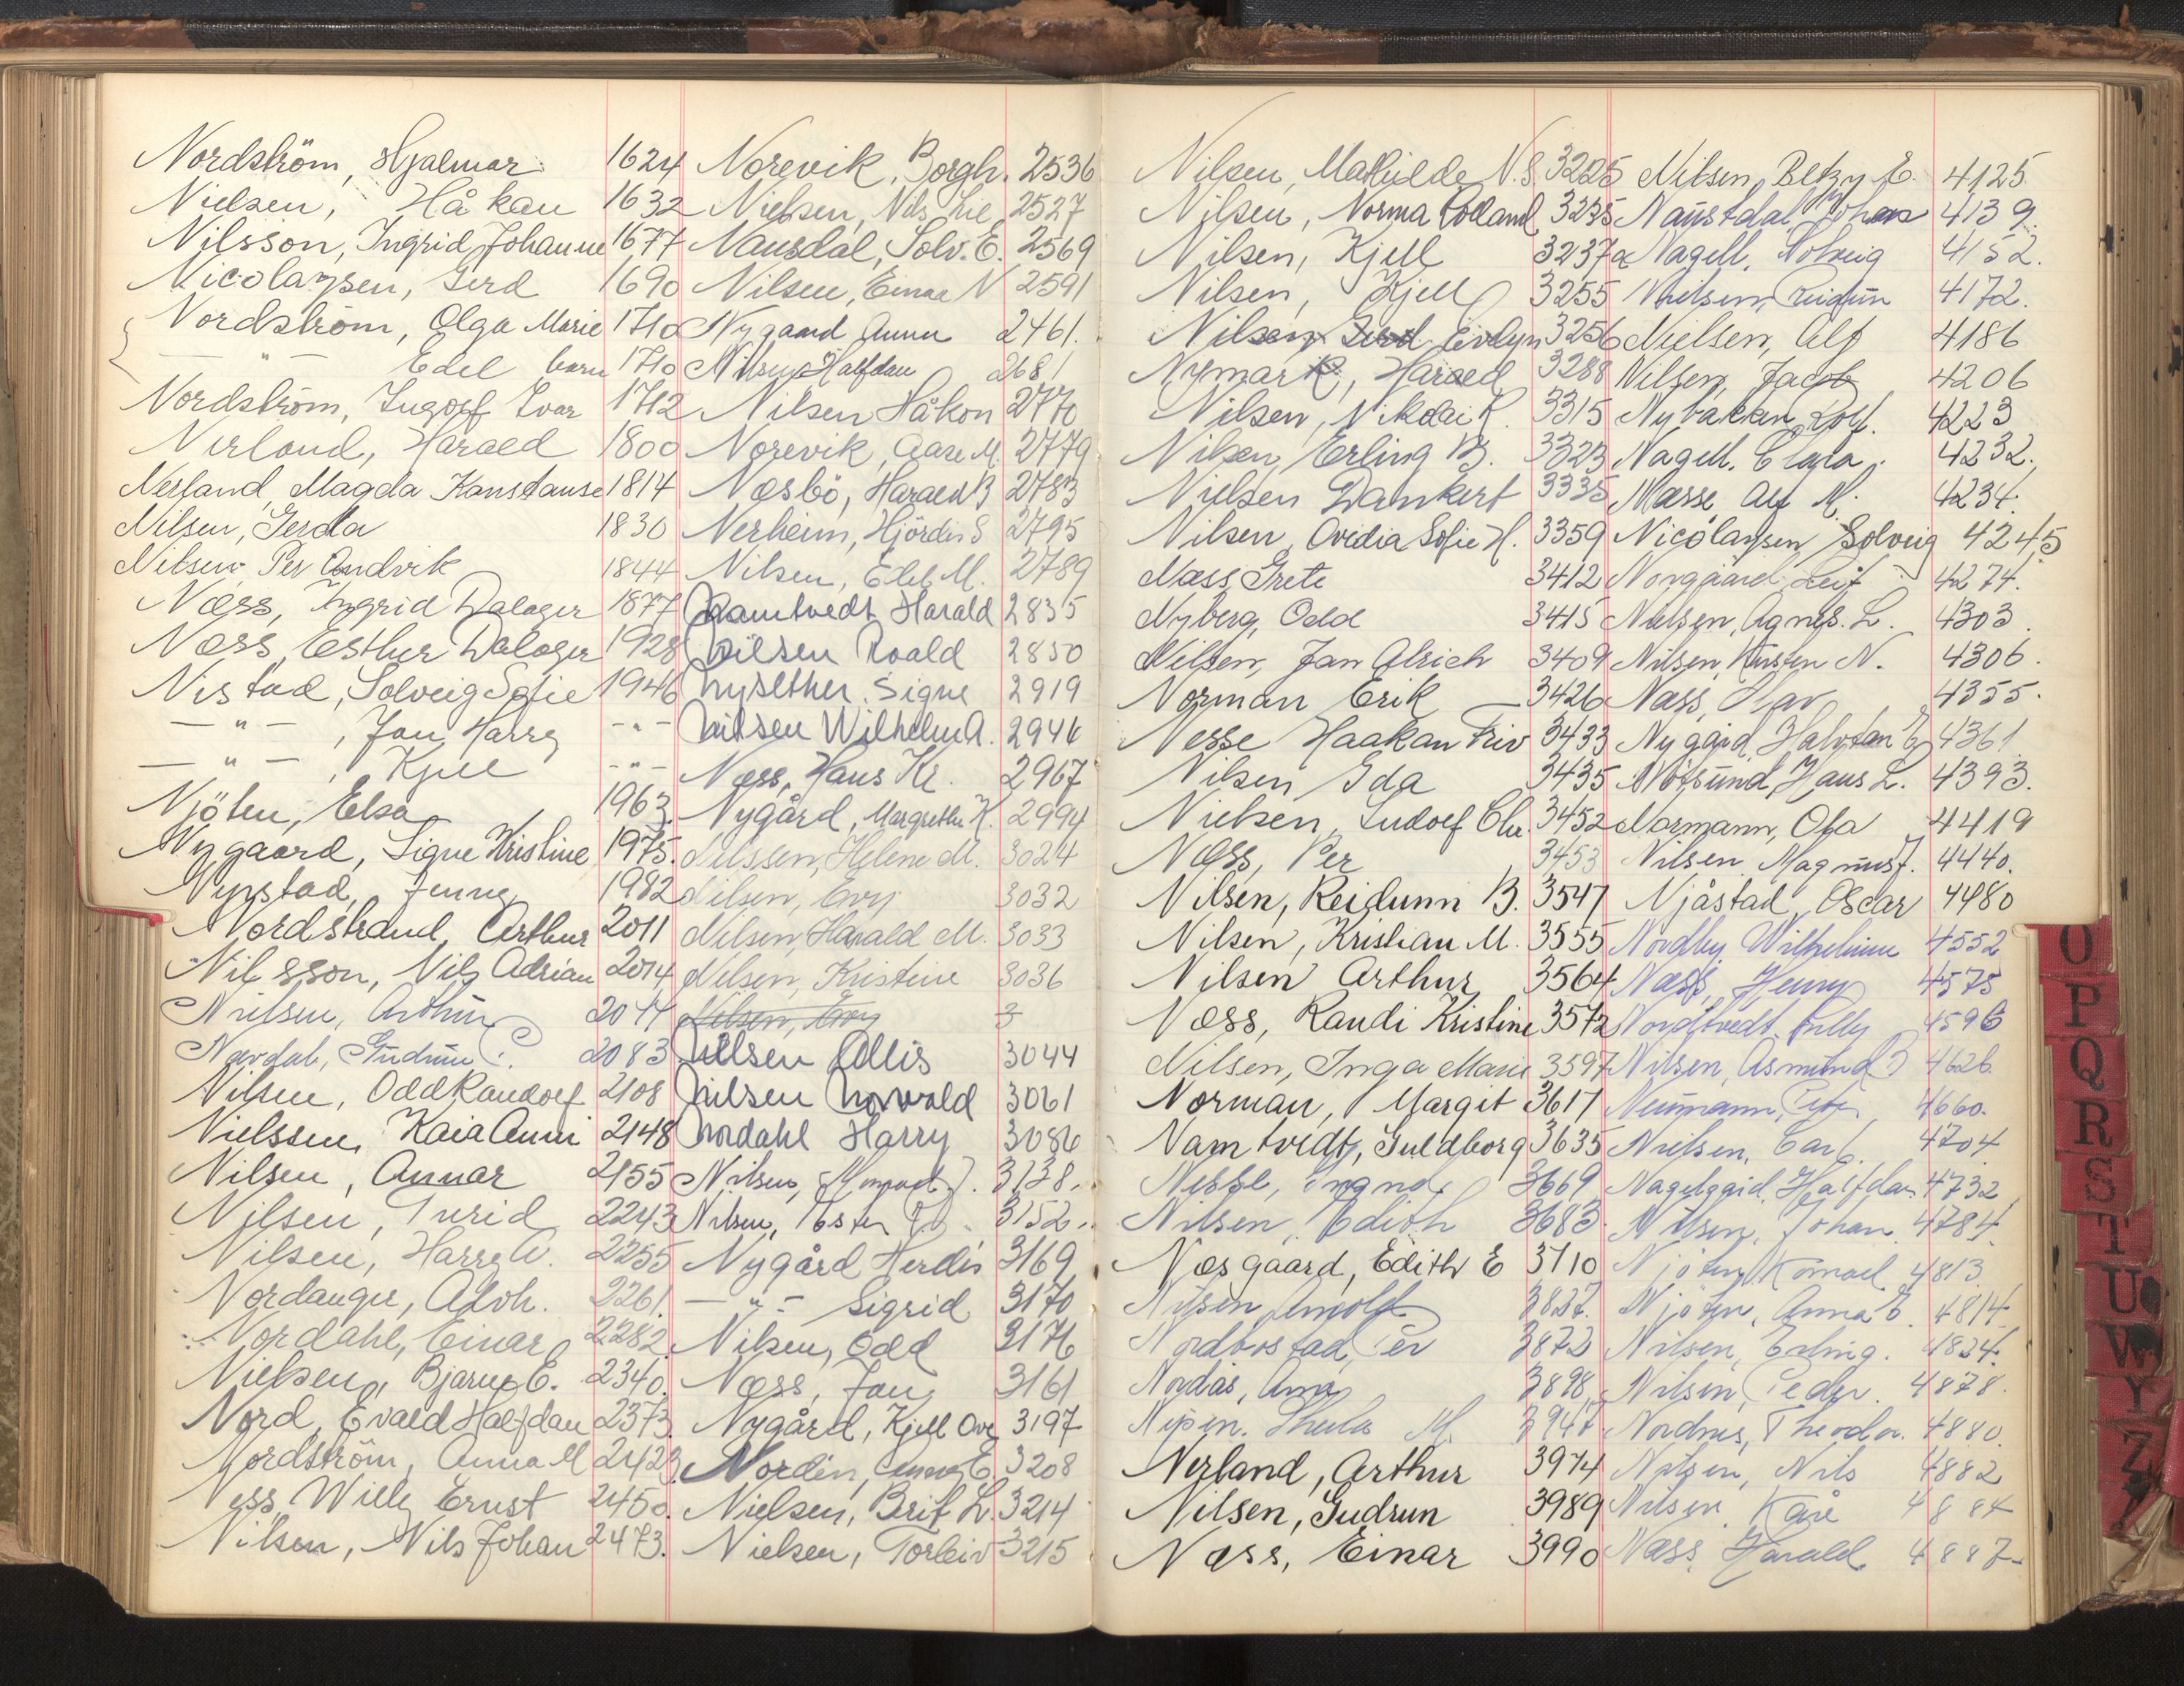 Nordström, Hjalmar 1624
Nielsen, Håkan 1632
Nilsson, Ingrid Johanne 1677
Nicolaysen, Gerd 1690
Nordström, Olga Marie 1710
— " — Edel barn 1710
Nordström, Ingolf Ivar 1712
Nerland, Harald 1800
Nerland, Magda Konstanse 1814
Nilsen, Gerda 1830
Nilsen, Per Andvik 1844
Næss, Ingrid Dalager 1877
Næss, Esther Dalager 1928
Nistad, Solveig Sofie 1946
— " — , Jan Harry - " -
— " — , Kjell - " -
Njöten, Elsa 1963.
Nygaard, Signe Kristine 1975.
Nystad, Jenny 1982
Nordstrand, Arthur 2011
Nilsson, Nils Adrian 2014
Nilsen, Arthur 2044
Navdal, Gudrun 2083
Nilsen, Odd Randolf 2108
Nielssen, Kaia Anni 2148
Nilsen, Annar 2155
Nilsen, Turid 2243
Nilsen, Harry A. 2255
Nordanger, Alvh. 2261.
Nordahl, Einar 2282
Nielsen, Bjarne E. 2340.
Nord, Evald Halfdan 2373
Nordström, Anna M 2423.
Ness, Willy Ernst 2450.
Nilsen, Nils Johan 2473.
Norevik, Borgh. 2536
Nielsen, Nils 2527
Nausdal, Solv. E. 2569
Nilsen, Einar N 2591
Nygaard Anna 2461.
Nilsen Halfdan 2681
Nilsen Håkon 2770
Norevik, Aase M. 2779
Næsbö, Harald 2783
Nerheim, Hjördis S 2795
Nilsen, Edel M. 2789
Namtvedt Harald 2835
Nilsen Roald 2850
Nysether. Signe 2919
Nilsen Wilhelm A. 2946
Næss, Hans Kr. 2967
Nygård, Margrethe K. 2994
Nilssen, Helene M. 3024
Nilsen, Evy 3032
Nilsen, Harald M. 3033
Nilsen, Kristine 3036
Nilsen, Evy 3
Nilsen Allis 3044
Nilsen Norvald 3061
Nordahl Harry 3086
Nilsen, 3138.
Nilsen, 3152.
Nygård Herdis 3169
— " — Sigrid 3170
Nilsen, Odd 3176
Næss, Jan 3161
Nygård, Kjell Ove 3197
Nordin, Anna E. 3208
Nielsen, Berit L. 3214
Nielsen, Torleiv 3215
Nilsen, Mathilde N.S. 3225
Nilsen, Norma Rolland 3235
Nilsen, Kjell 3237a
Nilsen, Kjell 3255
Nilsen Gerd Evelyn 3256
Nymark, Harald 3288
Nilsen, Nikolai R. 3315
Nilsen, Erling B. 3323
Nielsen Dankert 3335
Nilsen, Ovidia Sofie H. 3359
Næss, Grete 3412
Nyberg, Odd 3415
Nilsen, Jan Alrich 3409
Norman Erik 3426
Nesse Haakan Friv 3433
Nilsen Ida 3435
Nielsen, Ludolf Chr. 3452
Næss, Per 3453
Nilsen, Reidunn B. 3547
Nilsen, Kristian M. 3555
Nilsen Arthur 3564
Næss, Randi Kristine 3572
Nilsen, Inga Marie 3597
Norman, Margit 3617
Namtvedt, Guldborg 3635
3669
Nilsen, Edith 3683
Næsgaard, Edith E 3710
Nilsen Arnolf 3837.
Nordbostad, Per 3872
Nordås, Arna 3898
M. 394
Nerland, Arthur 3974
Nilsen, Gudrun 3989
Næss, Einar 3990
Nilsen, Betzy E. 4125
Naustdal, Johan 4139.
Nagell, Solveig 4152.
Nielsen, Reidun 4172.
Nielsen, Alf 4186
Nilsen, Jacob 4206
Nybakken, Rolf. 4223
Nagell, Clara. 4232.
Næsse Alf M. 4234.
Nicolaysen, Solveig 4245
Norgaard Leif 4274.
Nielsen, Agnes. L. 4303.
Nilsen, Kirsten N. 4306.
Næss, Olav 4355.
Nygård, Halvdan 4361
Nötsund, Hans L. 4393.
Normann, Ola 4419
Nilsen Magnus J. 4440.
Njåstad, Oscar 4480
Nordby, Wilhelmine 4552
Næss, Henny 4575
Nordtvedt, 4596
Nilsen, Asmund 4626.
Neumann, 4660.
Nielsen, Carl. 4704
Nagelgaard, Halfdan 4732
Nilsen, Johan. 4784.
Njöten, Konrad 4813.
Njöten, Anna E. 4814.
Nilsen, Erling. 4824.
Nilsen, Peder. 4878.
Nordnes, Theodor. 4880.
Nilsen, Nils 4882
Nilsen Kåre 4884
Næss, Harald 4887
O
P
Q
R
S
T
U
W
Y
Z